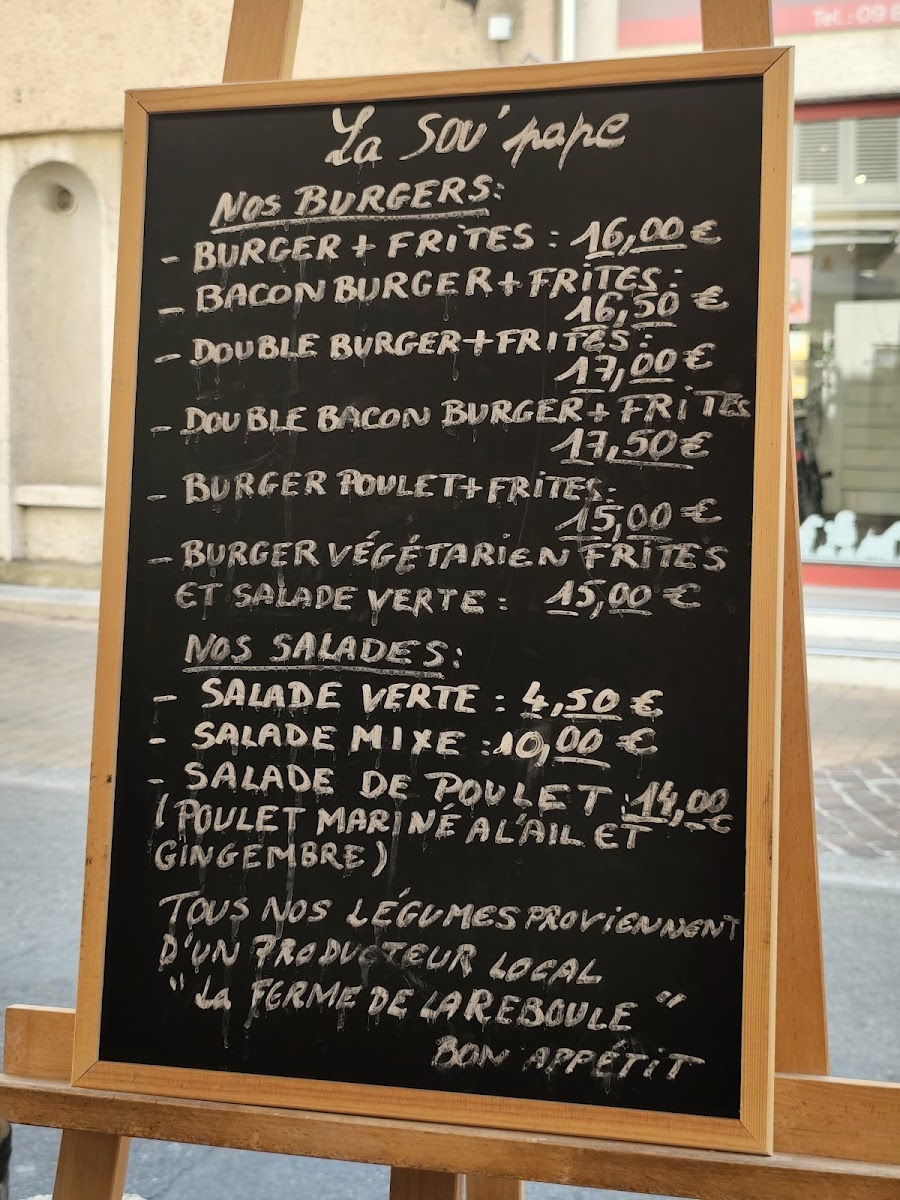 Tel.: 09 8
La SOU'pape
NOS BURGERS:
- BURGER + FRITES : 16,00 €
- BACON BURGER + FRITES :
16,50 €
- DOUBLE BURGER + FRITES :
17,00 €
- DOUBLE BACON BURGER + FRITES
17,50 €
- BURGER POULET + FRITES :
15,00 €
- BURGER VÉGÉTARIEN FRITES
ET SALADE VERTE : 15,00 €
NOS SALADES :
- SALADE VERTE : 4,50 €
- SALADE MIXE : 10,00 €
- SALADE DE POULET : 14,00
(POULET MARINÉ A L'AIL ET €
GINGEMBRE)
TOUS NOS LÉGUMES PROVIENNENT
D'UN PRODUCTEUR LOCAL
"La FERME DE LA REBOULE"
BON APPÉTIT